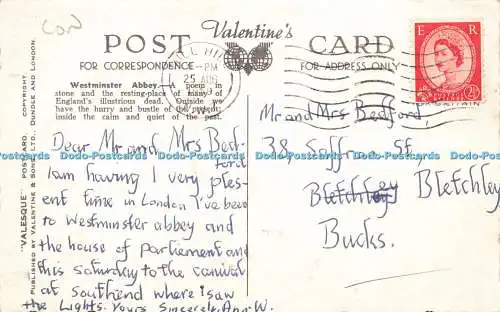 Con
Valentine's
POST CARD
FOR CORRESPONDENCE
FOR ADDRESS ONLY
-PM
25 AUG
E R
2½
Westminster Abbey.—A poem in
stone and the resting-place of many of
England's illustrious dead. Outside we
have the hurry and bustle of the present;
inside the calm and quiet of the past.
"VALESQUE" POST CARD. COPYRIGHT.
PUBLISHED BY VALENTINE & SONS LTD., DUNDEE AND LONDON.
Dear Mr and Mrs Bed-
ford
I am having I very ples-
ent time in London I've been
to Westminster abbey and
the house of parliement and
this saturday to the canival
at Southend where i saw
the Lights. Yours Sincerely, Ann. W.
Mr and Mrs Bedford,
38 Saffron St.
Bletchley Bletchley
Bucks.
Postcards Dodo-Postcards Dodo-Postcards Dodo-Postcards Dodo-Postcards